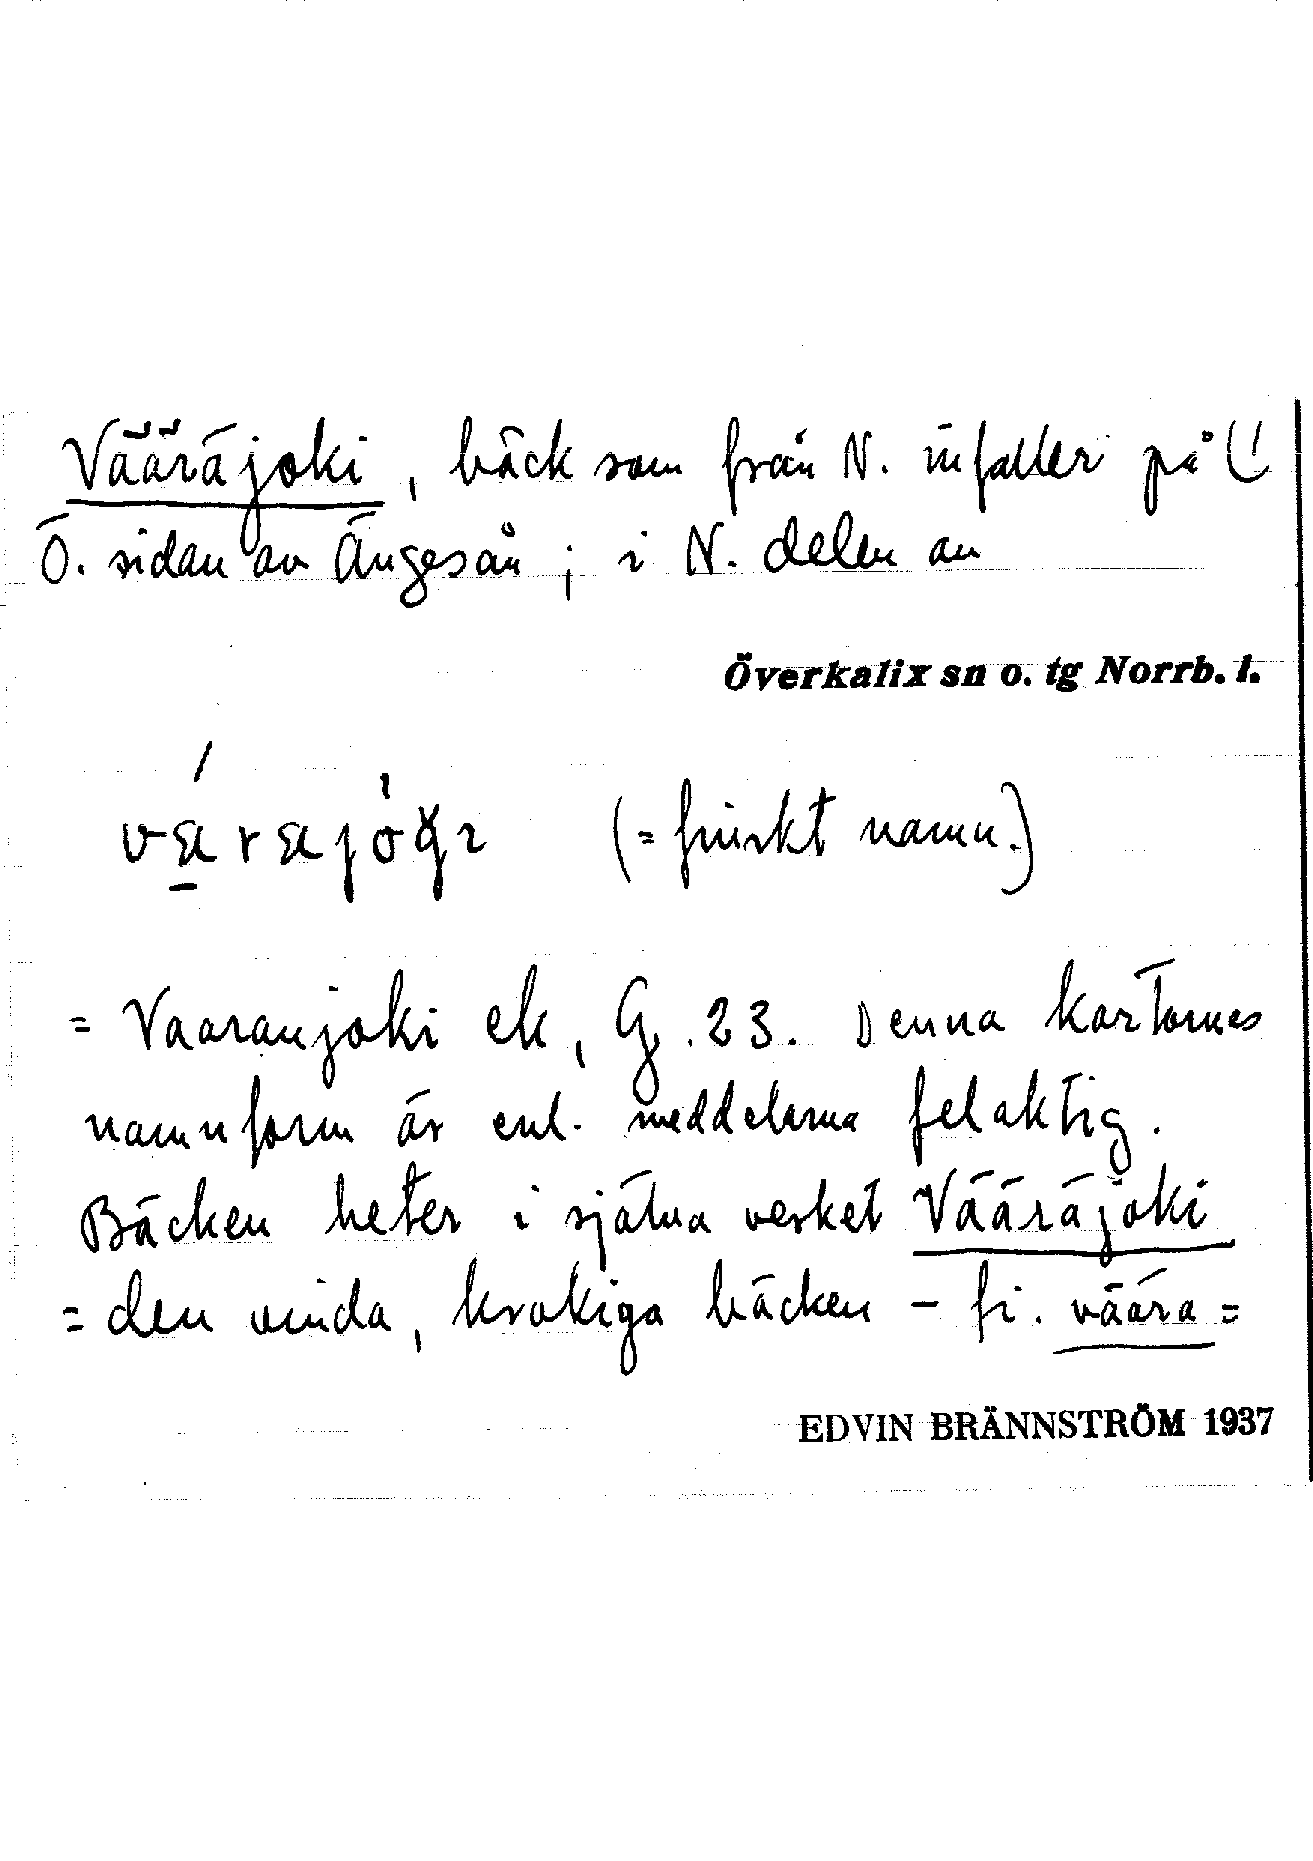 Vääräjoki, bäck som från N. infaller på
Ö. sidan av Ängesån; i N. delen av
Överkalix sn o. tg Norrb. l.
(= finskt namn.)
= Vaaranjoki ek, G. 23. Denna kartornes
namnform är enl. meddelarna felaktig.
Bäcken heter i själva verket Vääräjoki
= den vinda, krokiga bäcken – fi. väärä =
EDVIN BRÄNNSTRÖM 1937